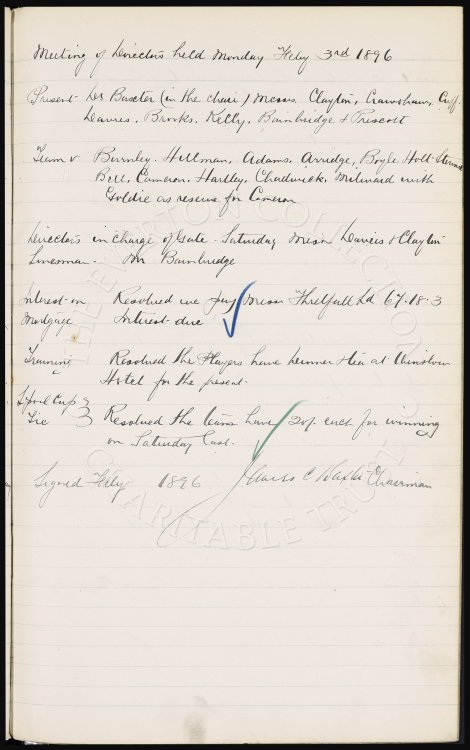 Meeting of Directors held Monday Feby 3rd 1896
Present Dr Baxter (in the chair) Messrs. Clayton, Crawshaw, Cuff,
Davies, Brooks, Kelly, Bainbridge & Prescott
Team v Burnley. Hillman, Adams, Arridge, Boyle Holt Stewart
Bell, Cameron, Hartley, Chadwick, Milward with
Goldie as reserve for Cameron
Directors in charge of Gate Saturday Messrs Davies & Clayton
Linesman - Mr Bainbridge
Interest on Resolved we pay Messrs Threlfall Ld 67-18-3
Mortgage Interest due
Training Resolved the Players have dinner & tea at
Hotel for the present.
Cup
Tie Resolved the team have 20/- each for winning
on Saturday last.
Signed Feby 1896 James C Baxter Chairman
THE EVERTON COLLECTION
CHARITABLE TRUST